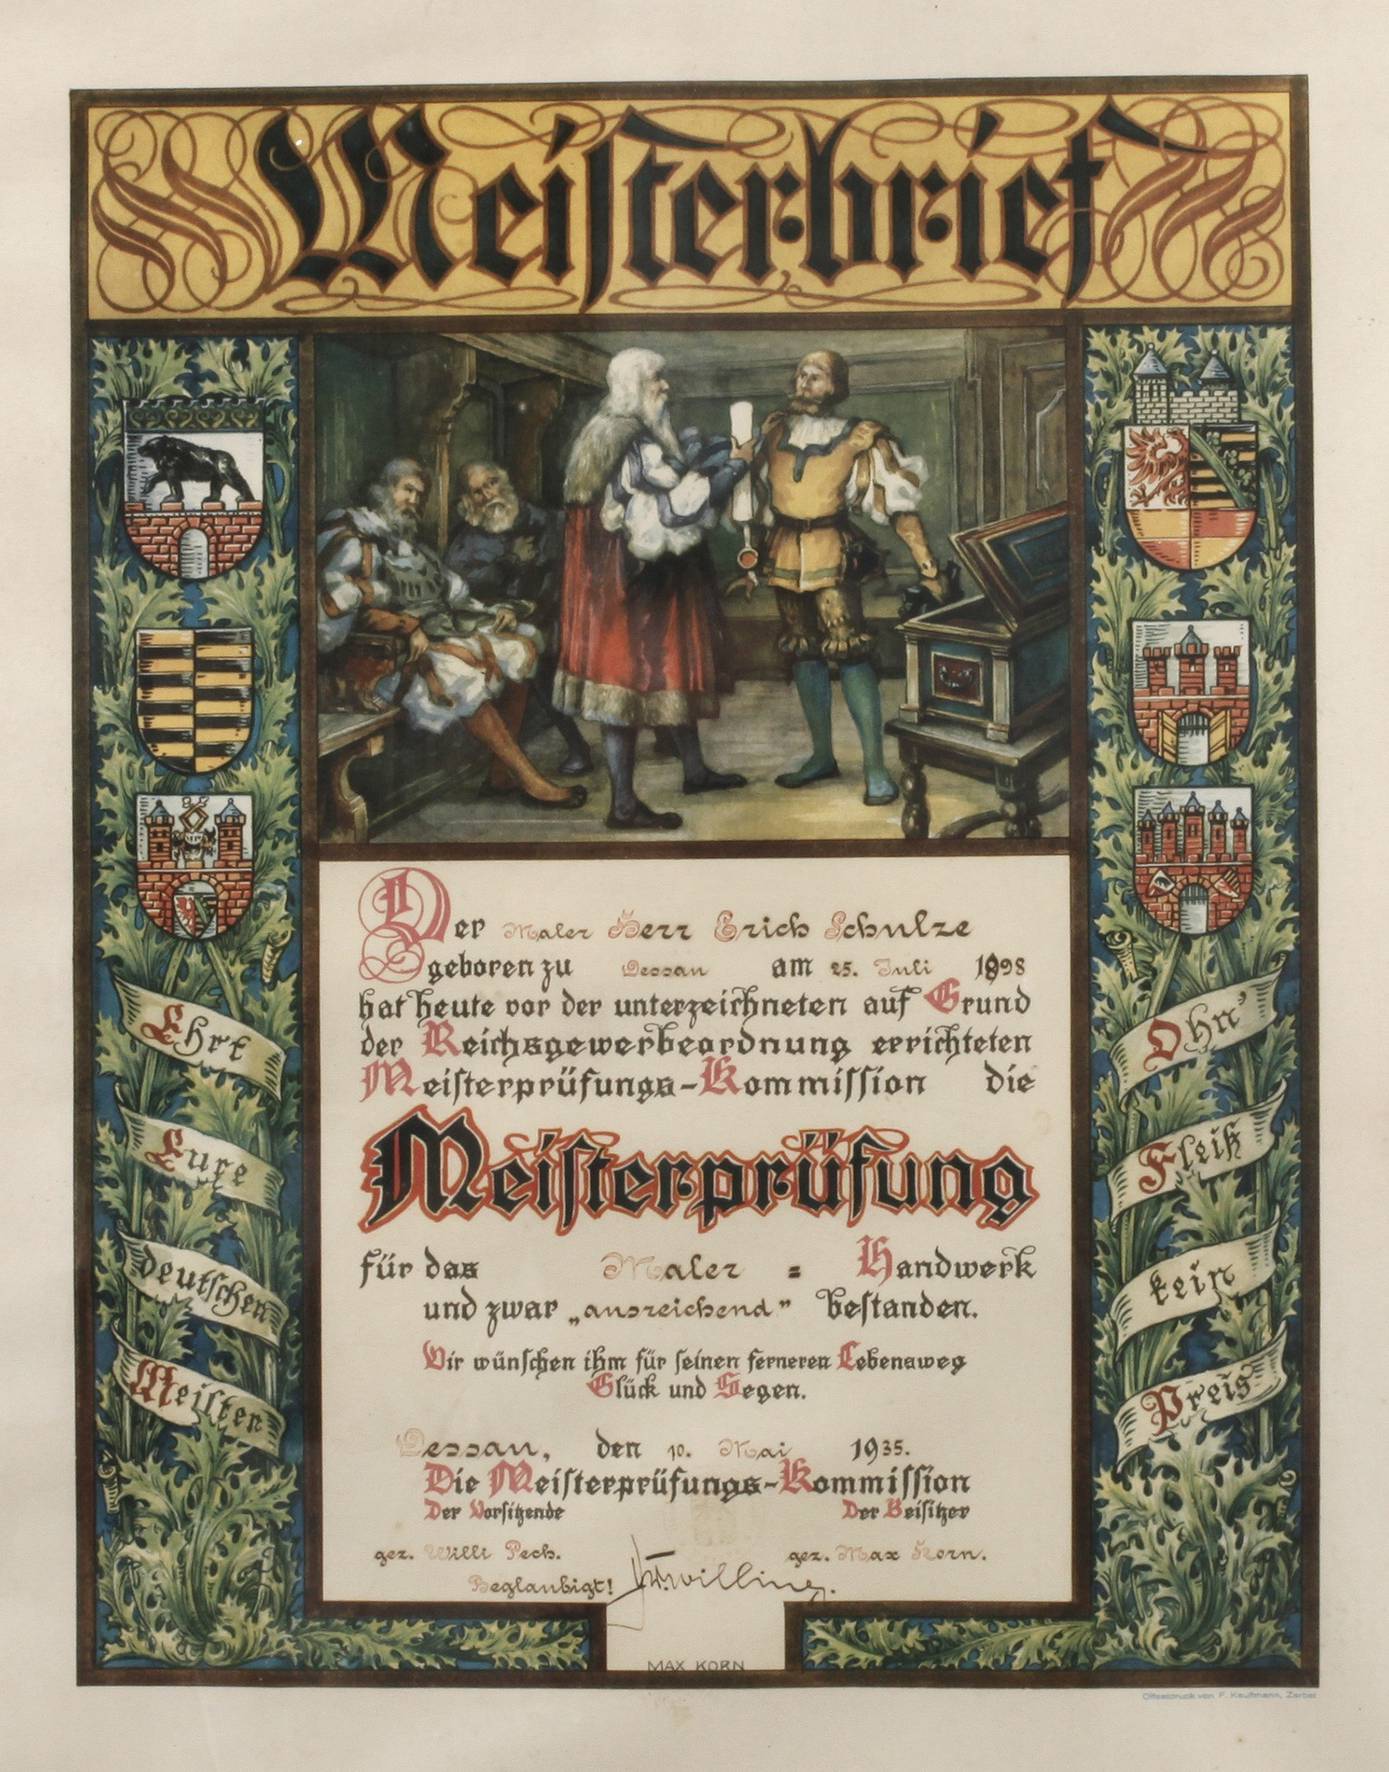 Meisterbrief
Der Maler Herr Erich Schulze
geboren zu Dessau am 25. Juli 1898
hat heute vor der unterzeichneten auf Grund
der Reichsgewerbeordnung errichteten
Meisterprüfungs-Kommission die
Meisterprüfung
für das Maler = Handwerk
und zwar „ausreichend" bestanden.
Wir wünschen ihm für seinen ferneren Lebensweg
Glück und Segen.
Dessau, den 10. Mai 1935.
Die Meisterprüfungs-Kommission
Der Vorsitzende Der Beisitzer
gez. Willi Pech. gez. Max Korn.
Beglaubigt!
MAX KORN
Ehrt
Eure
deutschen
Meister
Ohn'
Fleiß
kein
Preis
Offsetdruck von F. Kaufmann, Zerbst